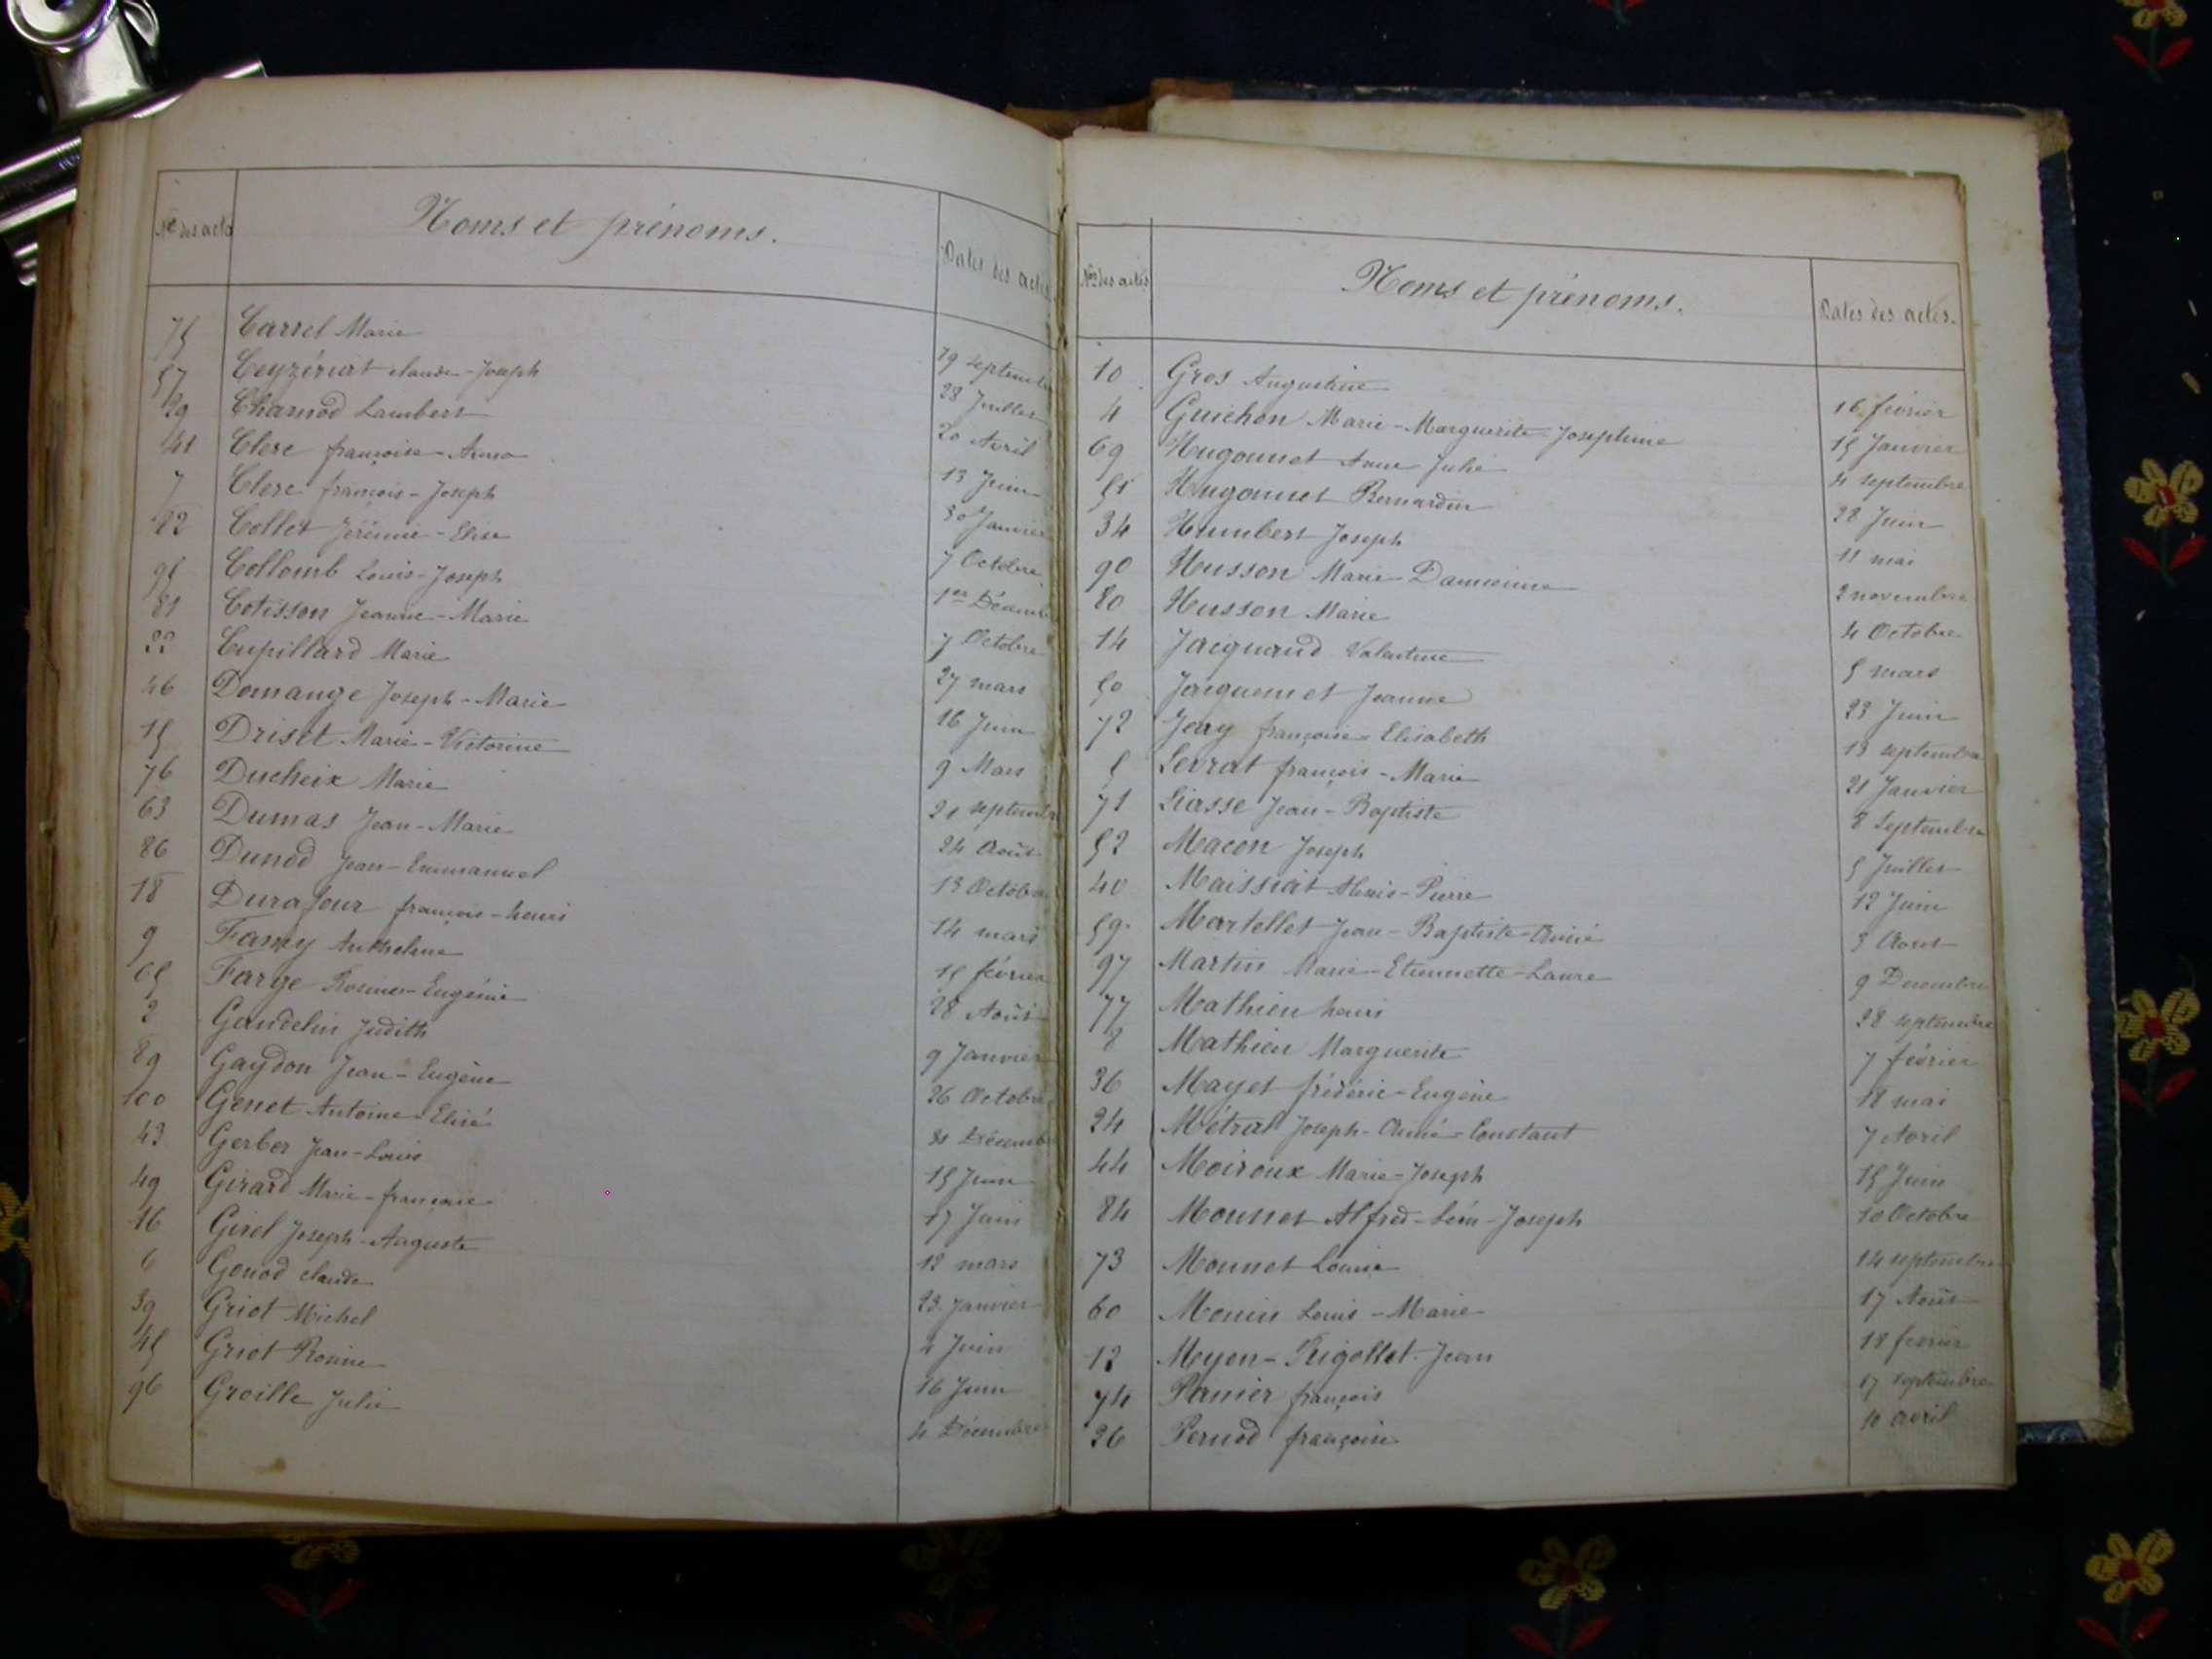 Nos des actes Noms et prénoms. Dates des actes
75 Carrel Marie 19 septembre
57 Ceyzériat claude-Joseph 28 Juillet
29 Chamod Lambert 20 Avril
41 Clerc françoise-Anna 13 Juin
7 Clerc françois-Joseph 30 Janvier
82 Collet Jérémie-Elise 7 Octobre
95 Collomb Louis-Joseph 1er Décembre
81 Cotisson Jeanne-Marie 7 Octobre
22 Cupillard Marie 27 mars
46 Domange Joseph-Marie 16 Juin
15 Driset Marie-Victorine 9 Mars
76 Ducheix Marie 21 septembre
63 Dumas Jean-Marie 24 Août
86 Dunod Jean-Emmanuel 13 Octobre
18 Durafour françois-henri 14 mars
9 Famy Anthelme 15 février
65 Farge Rosine-Eugénie 28 Août
2 Gaudelin Judith 9 Janvier
89 Gaydon Jean-Eugène 26 Octobre
100 Genet Antoine-Elisé 31 Décembre
43 Gerber Jean-Louis 15 Juin
49 Girard Marie-françoise 17 Juin
16 Girel Joseph-Auguste 12 mars
6 Gonod claude 23 Janvier
39 Griot Michel 2 Juin
45 Griot Rosine 16 Juin
96 Groille Julie 4 Décembre
Nos des actes Noms et prénoms. Dates des actes.
10 Gros Augustine 16 février
4 Guichon Marie-Marguerite-Josephine 15 Janvier
69 Hugonnet Anne Julie 4 septembre
51 Hugonnet Bernardin 28 Juin
34 Humbert Joseph 11 mai
90 Husson Marie 2 novembre
80 Husson Marie 4 Octobre
14 Jacquand Valentine 5 mars
50 Jacquemet Jeanne 23 Juin
72 Jeay françoise-Elisabeth 13 septembre
5 Levrat françois-Marie 21 Janvier
71 Liasse Jean-Baptiste 8 Septembre
52 Macon Joseph 5 Juillet
40 Maissiat Alexis-Pierre 12 Juin
59 Martellet Jean-Baptiste-Aimé 3 Aout
97 Martin Marie-Etiennette-Laure 9 Decembre
77 Mathieu henri 28 septembre
8 Mathieu Marguerite 7 février
36 Mayet frédéric-Eugène 18 mai
24 Métral Joseph-Aimé-Constant 7 Avril
44 Moiroux Marie-Joseph 15 Juin
84 Monnet Alfred-Léon-Joseph 10 Octobre
73 Monnet Louise 14 septembre
60 Monin Louis-Marie 17 Août
12 Moyon-Rigollet Jean 18 fevrier
74 Panier françois 17 septembre
26 Pernod françoise 10 avril